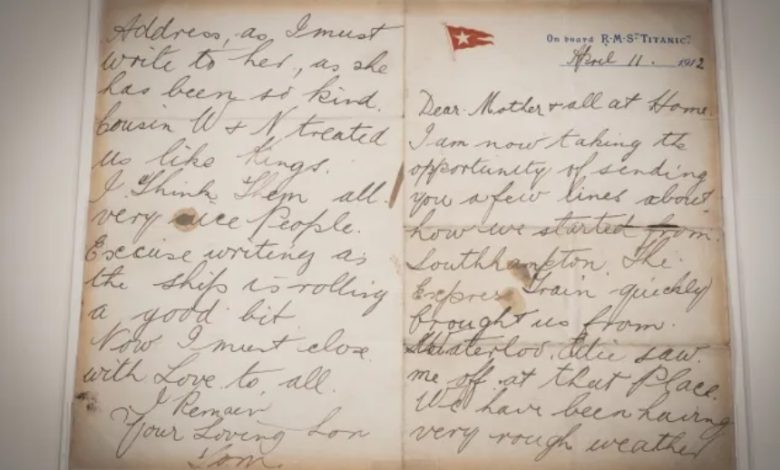 On board R.M.S. "TITANIC."
April 11. 1912
Dear Mother & all at Home.
I am now taking the
opportunity of sending
you a few lines about
how we started from.
Southhampton. The
Express Train quickly
brought us from.
Waterloo. saw.
me off at that Place.
We have been having
very rough weather
Address, as I must
write to her, as she
has been so kind.
Cousin W & N, treated
us like Kings.
I Think Them all.
very nice People.
Excuse writing as
the ship is rolling
a good bit
Now I must close.
with Love to, all.
I Remain
Your Loving Son
Tom.